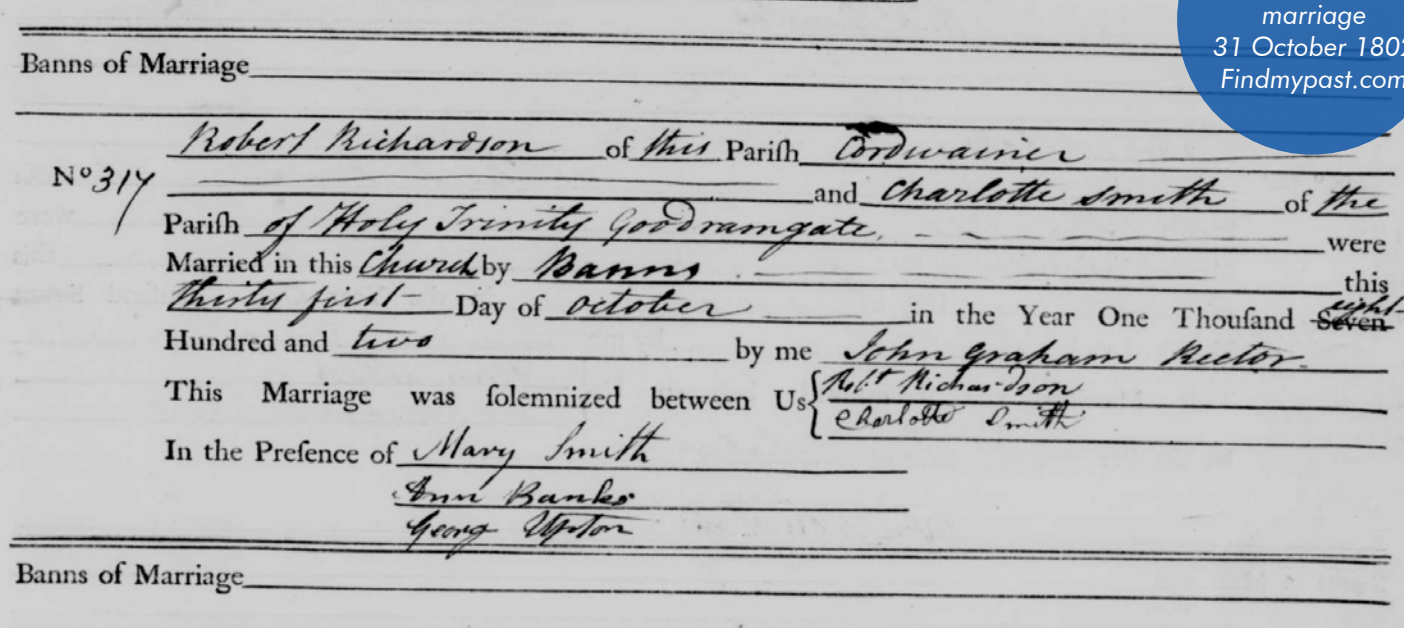 marriage
31 October 1802
Findmypast.com
Banns of Marriage
Robert Richardson of this Pariſh Cordwainer
Nº 317 and Charlotte Smith of the
Pariſh of Holy Trinity Goodramgate. were
Married in this Church by Banns this
thirty first Day of October in the Year One Thouſand Seven eight
Hundred and two by me John Graham Rector.
This Marriage was ſolemnized between Us { Robt Richardson
Charlotte Smith
In the Preſence of Mary Smith
Ann Banks
Georg Upton
Banns of Marriage